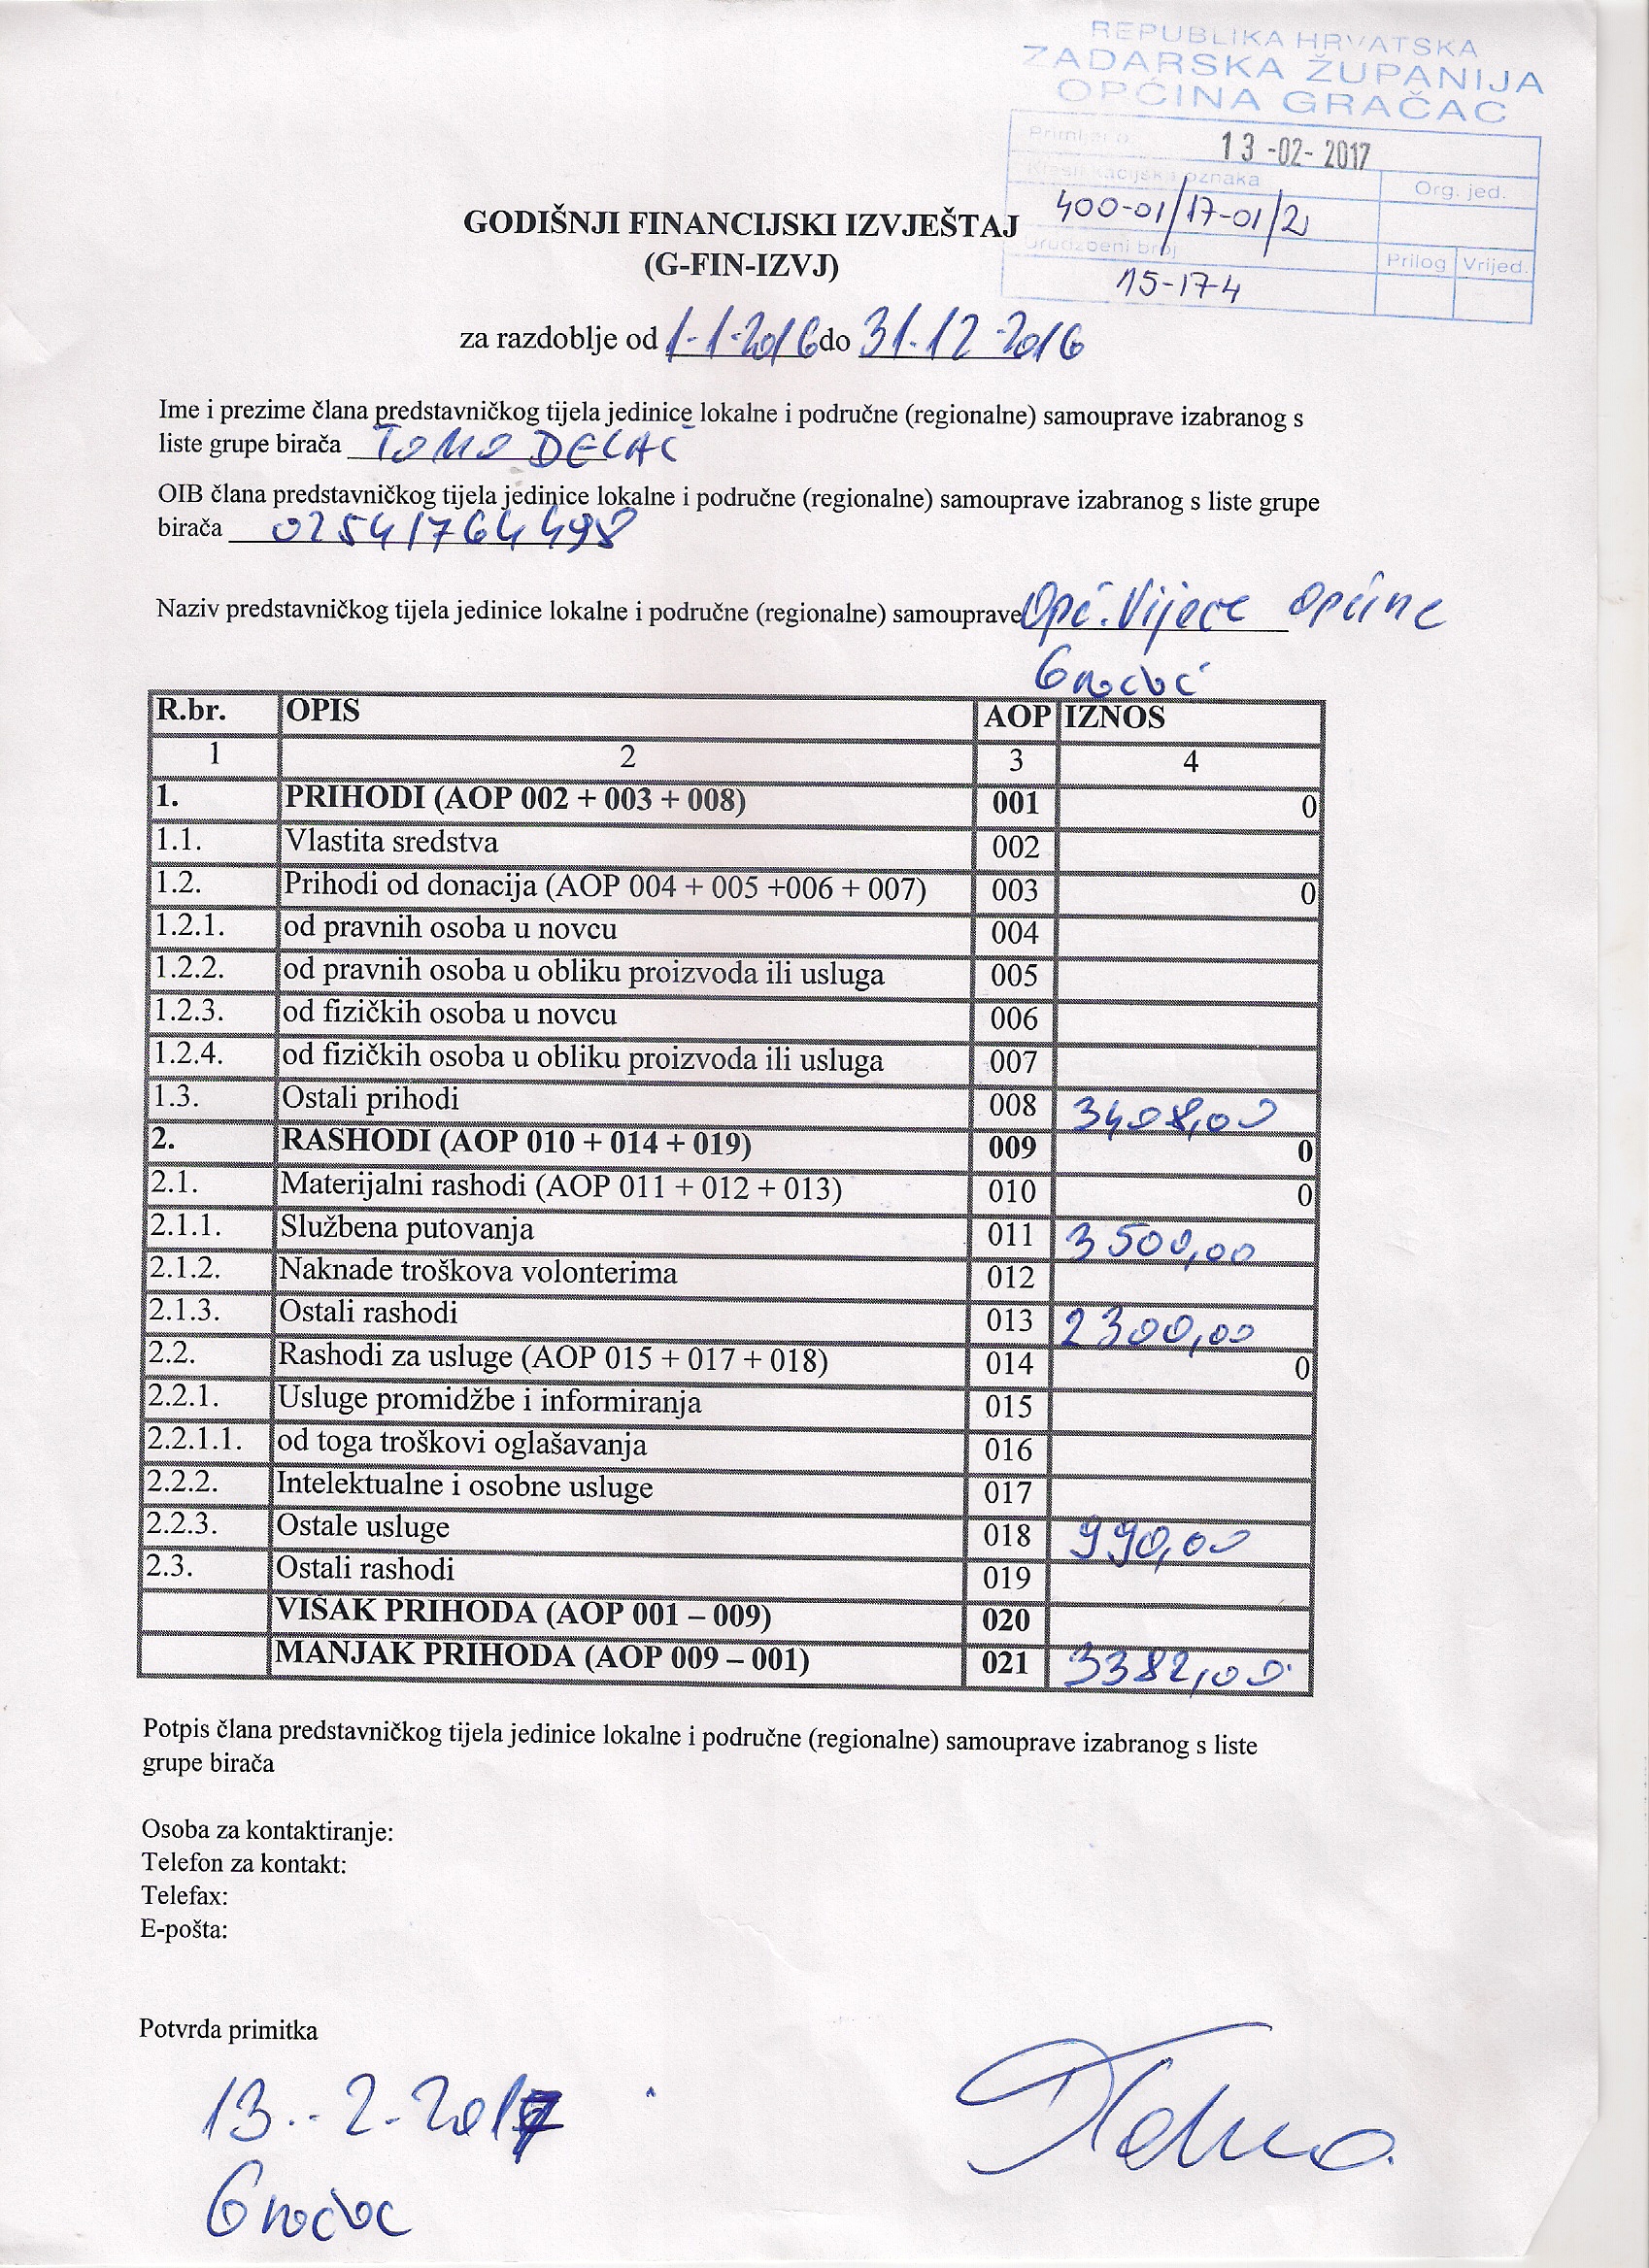 REPUBLIKA HRVATSKA
ZADARSKA ŽUPANIJA
OPĆINA GRAČAC
13-02-2017
oznaka
Org. jed.
400-01/17-01/2
Urudžbeni broj
Prilog Vrijed.
15-17-4
GODIŠNJI FINANCIJSKI IZVJEŠTAJ
(G-FIN-IZVJ)
za razdoblje od 1.1.2016 do 31.12.2016
Ime i prezime člana predstavničkog tijela jedinice lokalne i područne (regionalne) samouprave izabranog s
liste grupe birača TOMO DELAČ
OIB člana predstavničkog tijela jedinice lokalne i područne (regionalne) samouprave izabranog s liste grupe
birača 02541764498
Naziv predstavničkog tijela jedinice lokalne i područne (regionalne) samouprave Opć. Vijeće općine
Gračac
R.br. OPIS AOP IZNOS
1 2 3 4
1. PRIHODI (AOP 002 + 003 + 008) 001 0
1.1. Vlastita sredstva 002
1.2. Prihodi od donacija (AOP 004 + 005 +006 + 007) 003 0
1.2.1. od pravnih osoba u novcu 004
1.2.2. od pravnih osoba u obliku proizvoda ili usluga 005
1.2.3. od fizičkih osoba u novcu 006
1.2.4. od fizičkih osoba u obliku proizvoda ili usluga 007
1.3. Ostali prihodi 008 3408,00
2. RASHODI (AOP 010 + 014 + 019) 009 0
2.1. Materijalni rashodi (AOP 011 + 012 + 013) 010 0
2.1.1. Službena putovanja 011 3500,00
2.1.2. Naknade troškova volonterima 012
2.1.3. Ostali rashodi 013 2300,00
2.2. Rashodi za usluge (AOP 015 + 017 + 018) 014 0
2.2.1. Usluge promidžbe i informiranja 015
2.2.1.1. od toga troškovi oglašavanja 016
2.2.2. Intelektualne i osobne usluge 017
2.2.3. Ostale usluge 018 990,00
2.3. Ostali rashodi 019
VIŠAK PRIHODA (AOP 001 – 009) 020
MANJAK PRIHODA (AOP 009 – 001) 021 3382,00
Potpis člana predstavničkog tijela jedinice lokalne i područne (regionalne) samouprave izabranog s liste
grupe birača
Osoba za kontaktiranje:
Telefon za kontakt:
Telefax:
E-pošta:
Potvrda primitka
13.-2-2017
Gračac